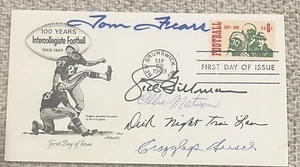 Tom Fears
100 YEARS
Intercollegiate Football
1869-1969
First Day of Issue
BRUNSWICK
SEP
1969
FOOTBALL
U.S. 6c
FIRST DAY OF ISSUE
Sid Gillman
Ollie Matson
Dick Night Train Lane
Crazylegs Hirsch